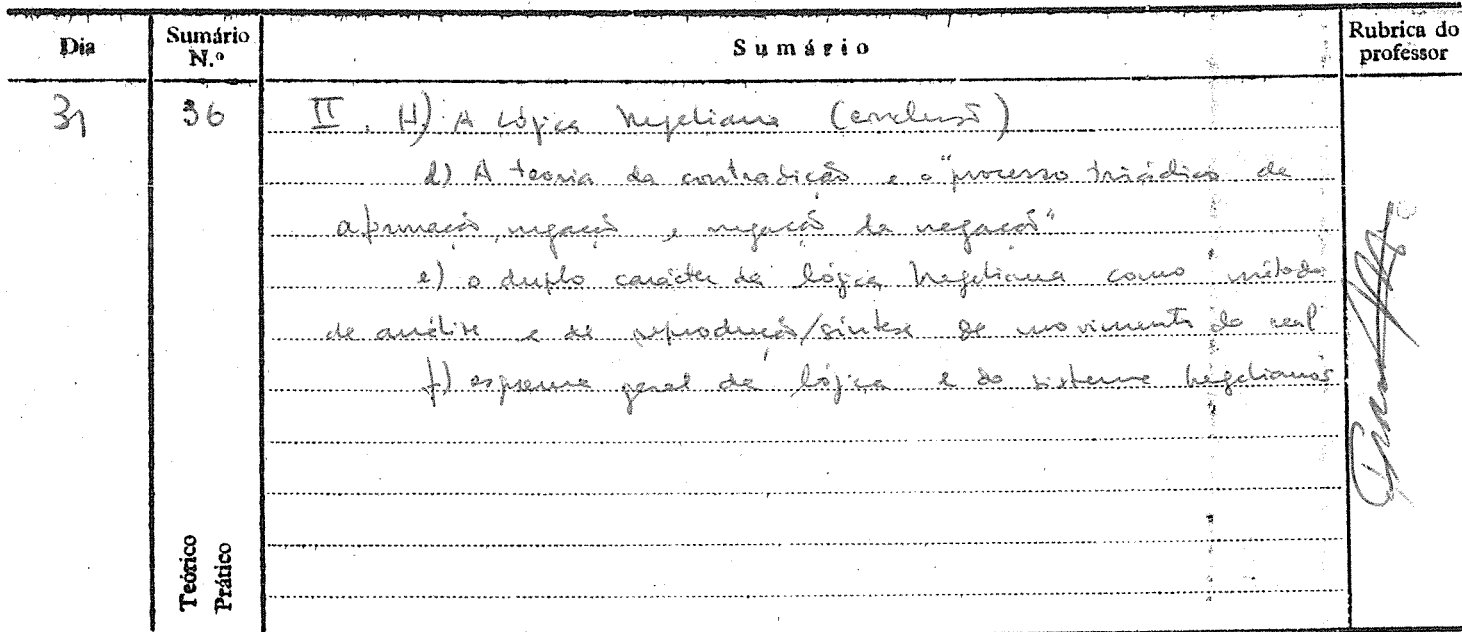 Dia Sumário N.º Sumário Rubrica do professor
31 36 II. H) A lógica hegeliana (conclusão)
d) A teoria da contradição e o "processo triádico de
afirmação, negação, e negação da negação"
e) o duplo carácter da lógica hegeliana como método
de análise e de reprodução/síntese do movimento do real
f) esquema geral da lógica e do sistema hegelianos
Teórico
Prático